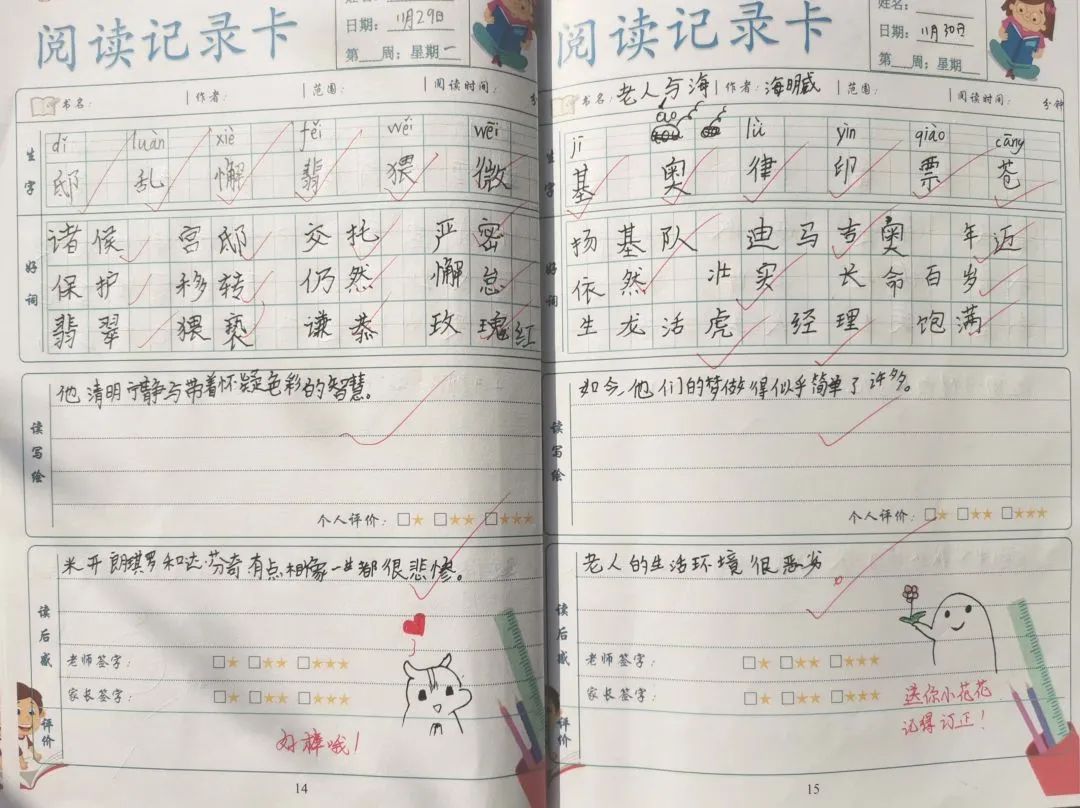 阅读记录卡
日期：11月29日
第 周；星期一
书名： 作者： 范围： 阅读时间： 分钟
生字
dǐ luàn xiè fěi wěi wēi
邸 乱 懈 翡 猥 微
好词
诸侯 宫邸 交托 严密
保护 移转 仍然 懈怠
翡翠 猥亵 谦恭 玫瑰红
读写绘
他清明宁静与带着怀疑色彩的智慧。
个人评价：□★ □★★ □★★★
读后感
米开朗琪罗和达·芬奇有点相像一生都很悲惨。
老师签字： □★ □★★ □★★★
家长签字： □★ □★★ □★★★
评价
好棒哦！
14
阅读记录卡
姓名：
日期：11月30日
第 周；星期
书名：老人与海 作者：海明威 范围： 阅读时间： 分钟
生字
jī ào lǜ yìn qiào cāng
基 奥 律 印 票 苍
好词
扬基队 迪马吉奥 年迈
依然 壮实 长命百岁
生龙活虎 经理 饱满
读写绘
如今，他们的梦做得似乎简单了许多。
个人评价：□★ □★★ □★★★
读后感
老人的生活环境很恶劣
老师签字： □★ □★★ □★★★
家长签字： □★ □★★ □★★★
评价
送你小花花
记得订正！
15